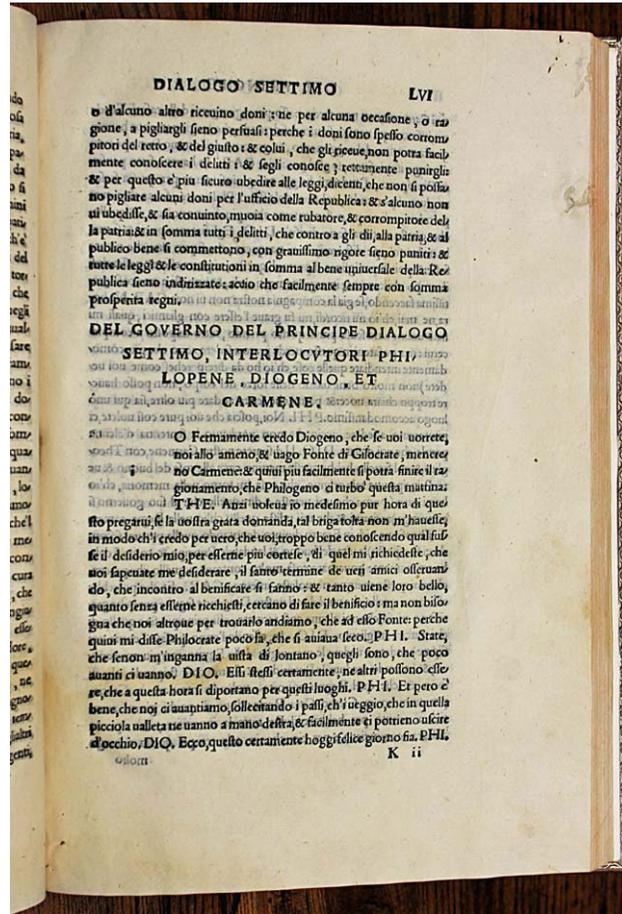 DIALOGO SETTIMO LVI
o d'alcuno altro riceuino doni: ne per alcuna occasione, o ra-
gione, a pigliargli sieno persuasi: perche i doni sono spesso corrom-
pitori del retto, & del giusto: & colui, che gli riceue, non potra facil-
mente conoscere i delitti: & segli conosce; rettamente punirgli:
& per questo e' piu sicuro ubedire alle leggi, dicenti, che non si possa-
no pigliare alcuni doni per l'ufficio della Republica: & s'alcuno non
ui ubedisse, & sia conuinto, muoia come rubatore, & corrompitore del-
la patria: & in somma tutti i delitti, che contro a gli dii, alla patria, & al
publico bene si commettono, con grauissimo rigore sieno puniti: &
tutte le leggi & le constitutioni in somma al bene uniuersale della Re-
publica sieno indirizzate: accio che facilmente sempre con somma
prosperita regni.
DEL GOVERNO DEL PRINCIPE DIALOGO
SETTIMO, INTERLOCVTORI PHI-
LOPENE, DIOGENO, ET
CARMENE.
O Fermamente credo Diogeno, che se uoi uorrete,
noi allo ameno, & uago Fonte di Gisocrate, menere-
i no Carmene: & quiui piu facilmente si potra finire il ra-
gionamento, che Philogeno ci turbo' questa mattina:
THE. Anzi uoleua io medesimo pur hora di que-
sto pregarui, se la uostra grata domanda, tal briga tolta non m'hauesse,
in modo ch'i credo per uero, che uoi, troppo bene conoscendo qual fus-
se il desiderio mio, per esserne piu cortese, di quel mi richiedeste, che
uoi sapeuate me desiderare, il santo termine de ueri amici osseruan-
do, che incontro al benificare si fanno: & tanto uiene loro bello,
quanto senza esserne richiesti, cercano di fare il benificio: ma non biso-
gna che noi altroue per trouarlo andiamo, che ad esso Fonte: perche
quiui mi disse Philocrate poco fa, che si auiaua seco. PHI. State,
che senon m'inganna la uista di lontano, quegli sono, che poco
auanti ci uanno. DIO. Essi stessi certamente, ne altri possono esse-
re, che a questa hora si diportano per questi luoghi. PHI. Et pero e'
bene, che noi ci auantiamo, sollecitando i passi, ch'i ueggio, che in quella
picciola ualleta ne uanno a mano destra, & facilmente ci potrieno uscire
d'occhio, DIO. Ecco, questo certamente hoggi felice giorno fia. PHI.
K ii